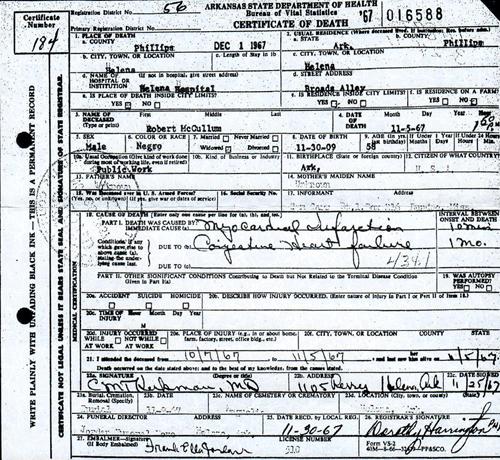 Certificate Number
184
Registration District No. 56
Primary Registration District No.
ARKANSAS STATE DEPARTMENT OF HEALTH
Bureau of Vital Statistics
CERTIFICATE OF DEATH
'67 016588
1. PLACE OF DEATH
a. COUNTY
Phillips
DEC 1 1967
2. USUAL RESIDENCE (Where deceased lived. If institution: Res. before adm.)
a. STATE
Ark.
b. COUNTY
Phillips
b. CITY, TOWN, OR LOCATION
Helena
c. Length of Stay in 1b
c. CITY, TOWN, OR LOCATION
Helena
d. NAME OF HOSPITAL OR INSTITUTION
(If not in hospital, give street address)
Helena Hospital
d. STREET ADDRESS
Broads Alley
e. IS PLACE OF DEATH INSIDE CITY LIMITS?
YES NO
e. IS RESIDENCE INSIDE CITY LIMITS?
YES NO
f. IS RESIDENCE ON A FARM?
YES NO
3. NAME OF DECEASED
(Type or print)
First Middle Last
Robert McCullum
4. DATE OF DEATH
Month Day Year
11-5-67
5. SEX
Male
6. COLOR OR RACE
Negro
7. Married Never Married
Widowed Divorced
8. DATE OF BIRTH
11-30-09
9. AGE (In yrs. last birthday)
58
If Under 1 Year
Months Days
If Under 24 Hours
Hours Min.
10a. Usual Occupation (Give kind of work done during most of working life, even if retired)
Public Work
10b. Kind of Business or Industry
11. BIRTHPLACE (State or foreign country)
Ark.
12. CITIZEN OF WHAT COUNTRY
13. FATHER'S NAME
Unknown
14. MOTHER'S MAIDEN NAME
Unknown
15. Was Deceased Ever in U. S. Armed Forces?
(Yes, no, or unknown) (If yes, give war or dates of service)
16. Social Security No.
17. INFORMANT
Address
18. CAUSE OF DEATH (Enter only one cause per line for (a), (b), and (c).
PART I. DEATH WAS CAUSED BY:
IMMEDIATE CAUSE (a)
Myocardial Infarction
INTERVAL BETWEEN ONSET AND DEATH
10 min
Conditions, if any which gave rise to above cause (a), stating the underlying cause last.
DUE TO (b)
Congestive Heart failure
1 mo.
DUE TO (c)
434.1
PART II. OTHER SIGNIFICANT CONDITIONS Contributing to Death but Not Related to the Terminal Disease Condition Given in Part I(a)
19. WAS AUTOPSY PERFORMED?
YES NO
20a. ACCIDENT SUICIDE HOMICIDE
20b. DESCRIBE HOW INJURY OCCURRED. (Enter nature of injury in Part I or Part II of Item 18.)
20c. TIME OF INJURY
Hour Month Day Year
M
20d. INJURY OCCURRED
WHILE AT WORK NOT WHILE AT WORK
20e. PLACE OF INJURY (e.g., in or about home, farm, factory, street, office bldg., etc.)
20f. CITY, TOWN, OR LOCATION COUNTY STATE
21. I attended the deceased from 10/7/67 to 11/5/67 and last saw her him alive on 11/5/67
Death occurred on the date stated above; and to the best of my knowledge, from the causes stated.
22a. SIGNATURE (Degree or title)
MD
22b. ADDRESS
1105 Perry Helena, Ark
22c. DATE SIGNED
11/25/67
23a. Burial, Cremation, Removal (Specify)
23b. DATE
23c. NAME OF CEMETERY OR CREMATORY
23d. LOCATION (City, town, or county) (State)
24. FUNERAL DIRECTOR ADDRESS
25. DATE RECD. BY LOCAL REG.
11-30-67
26. REGISTRAR'S SIGNATURE
Dorothy Harrington
27. EMBALMER—Signature (If Body Embalmed)
LICENSE NUMBER
Form VS-2
WRITE PLAINLY WITH UNFADING BLACK INK — THIS IS A PERMANENT RECORD
CERTIFICATE NOT LEGAL UNLESS IT BEARS STATE SEAL AND SIGNATURE OF STATE REGISTRAR.
MEDICAL CERTIFICATION